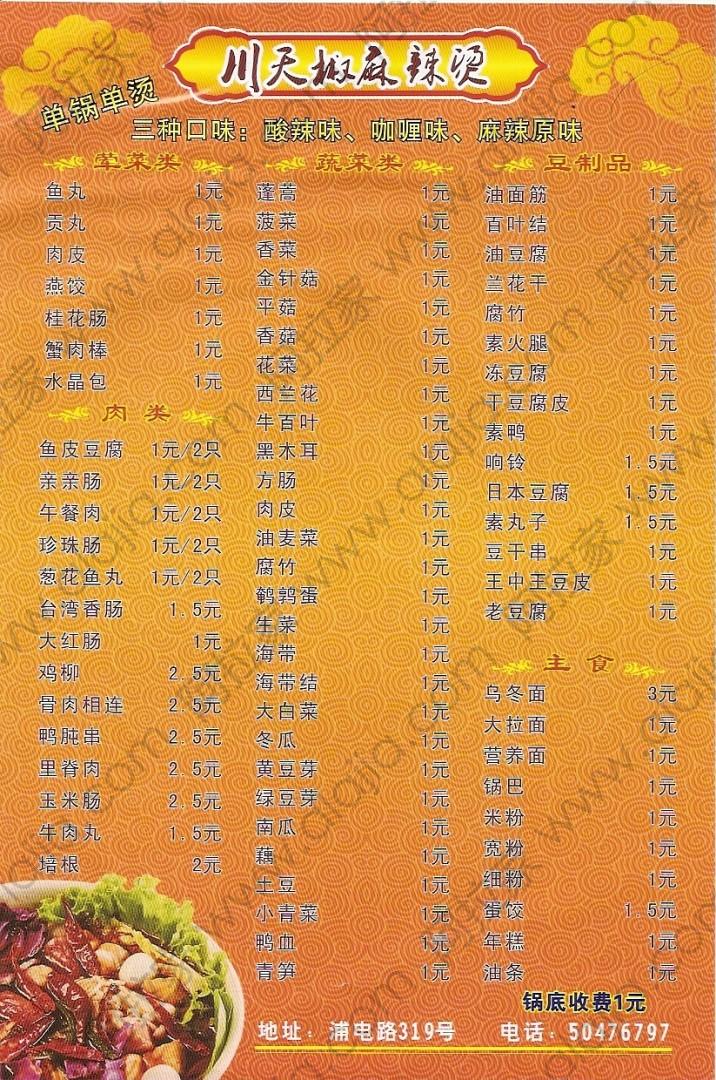 川天椒麻辣烫
单锅单烫
三种口味：酸辣味、咖喱味、麻辣原味
荤菜类
鱼丸 1元
贡丸 1元
肉皮 1元
燕饺 1元
桂花肠 1元
蟹肉棒 1元
水晶包 1元
肉类
鱼皮豆腐 1元/2只
亲亲肠 1元/2只
午餐肉 1元/2只
珍珠肠 1元/2只
葱花鱼丸 1元/2只
台湾香肠 1.5元
大红肠 1元
鸡柳 2.5元
骨肉相连 2.5元
鸭肫串 2.5元
里脊肉 2.5元
玉米肠 2.5元
牛肉丸 1.5元
培根 2元
蔬菜类
蓬蒿 1元
菠菜 1元
香菜 1元
金针菇 1元
平菇 1元
香菇 1元
花菜 1元
西兰花 1元
牛百叶 1元
黑木耳 1元
方肠 1元
肉皮 1元
油麦菜 1元
腐竹 1元
鹌鹑蛋 1元
生菜 1元
海带 1元
海带结 1元
大白菜 1元
冬瓜 1元
黄豆芽 1元
绿豆芽 1元
南瓜 1元
藕 1元
土豆 1元
小青菜 1元
鸭血 1元
青笋 1元
豆制品
油面筋 1元
百叶结 1元
油豆腐 1元
兰花干 1元
腐竹 1元
素火腿 1元
冻豆腐 1元
干豆腐皮 1元
素鸭 1元
响铃 1.5元
日本豆腐 1.5元
素丸子 1.5元
豆干串 1元
王中王豆皮 1元
老豆腐 1元
主食
乌冬面 3元
大拉面 1元
营养面 1元
锅巴 1元
米粉 1元
宽粉 1元
细粉 1元
蛋饺 1.5元
年糕 1元
油条 1元
锅底收费1元
地址：浦电路319号 电话：50476797